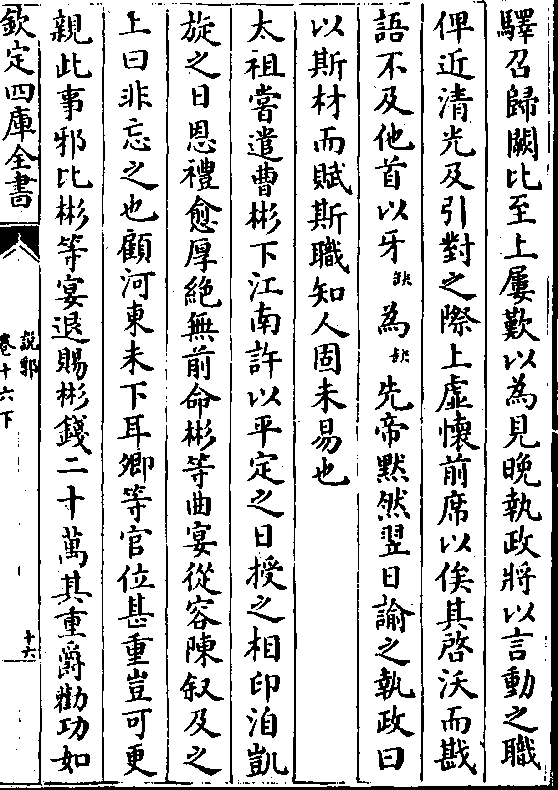 驛召歸闕比至上屢歎以為見晚執政將以言動之職
俾近清光及引對之際上虛懷前席以俟其啓沃而戡
語不及他首以牙缺為缺先帝黙然翌日諭之執政曰
以斯材而賦斯職知人固未易也
太祖嘗遣曹彬下江南許以平定之日授之相印洎凱
旋之日恩禮愈厚絶無前命彬等曲宴從容陳叙及之
上曰非忘之也顧河東未下耳卿等官位甚重豈可更
親此事邪比彬等宴退賜彬錢二十萬其重爵勸功如
欽定四庫全書
説郛
卷十六下
十六